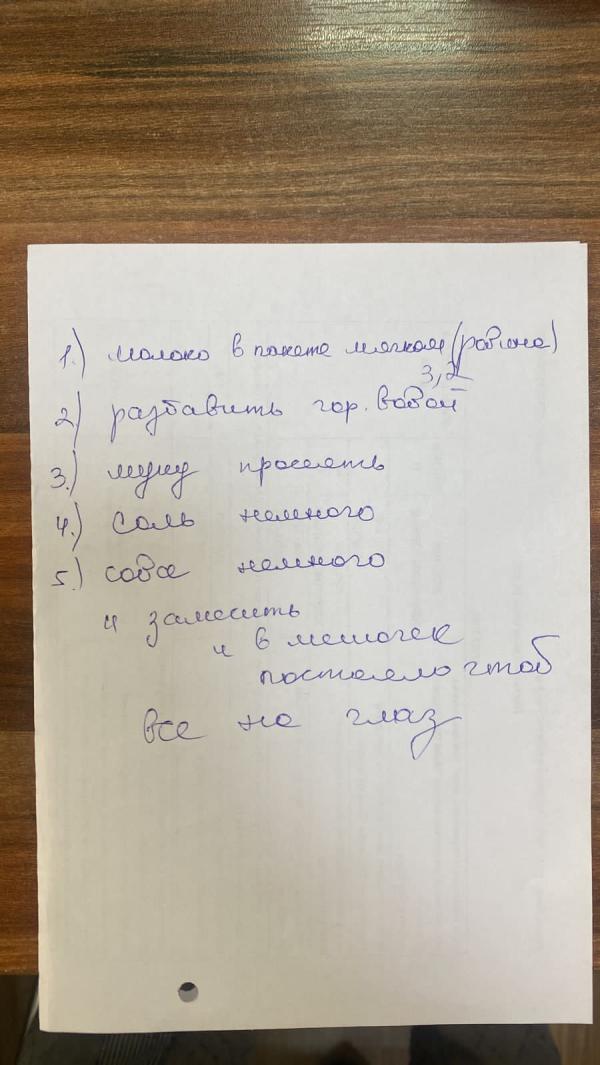 1.) молоко в пакете мягком (районе)
3,2
2) разбавить гор. водой
3.) муку просеять
4.) Соль немного
5.) сода немного
и замесить
и в мешочек
постояло чтоб
все на глаз